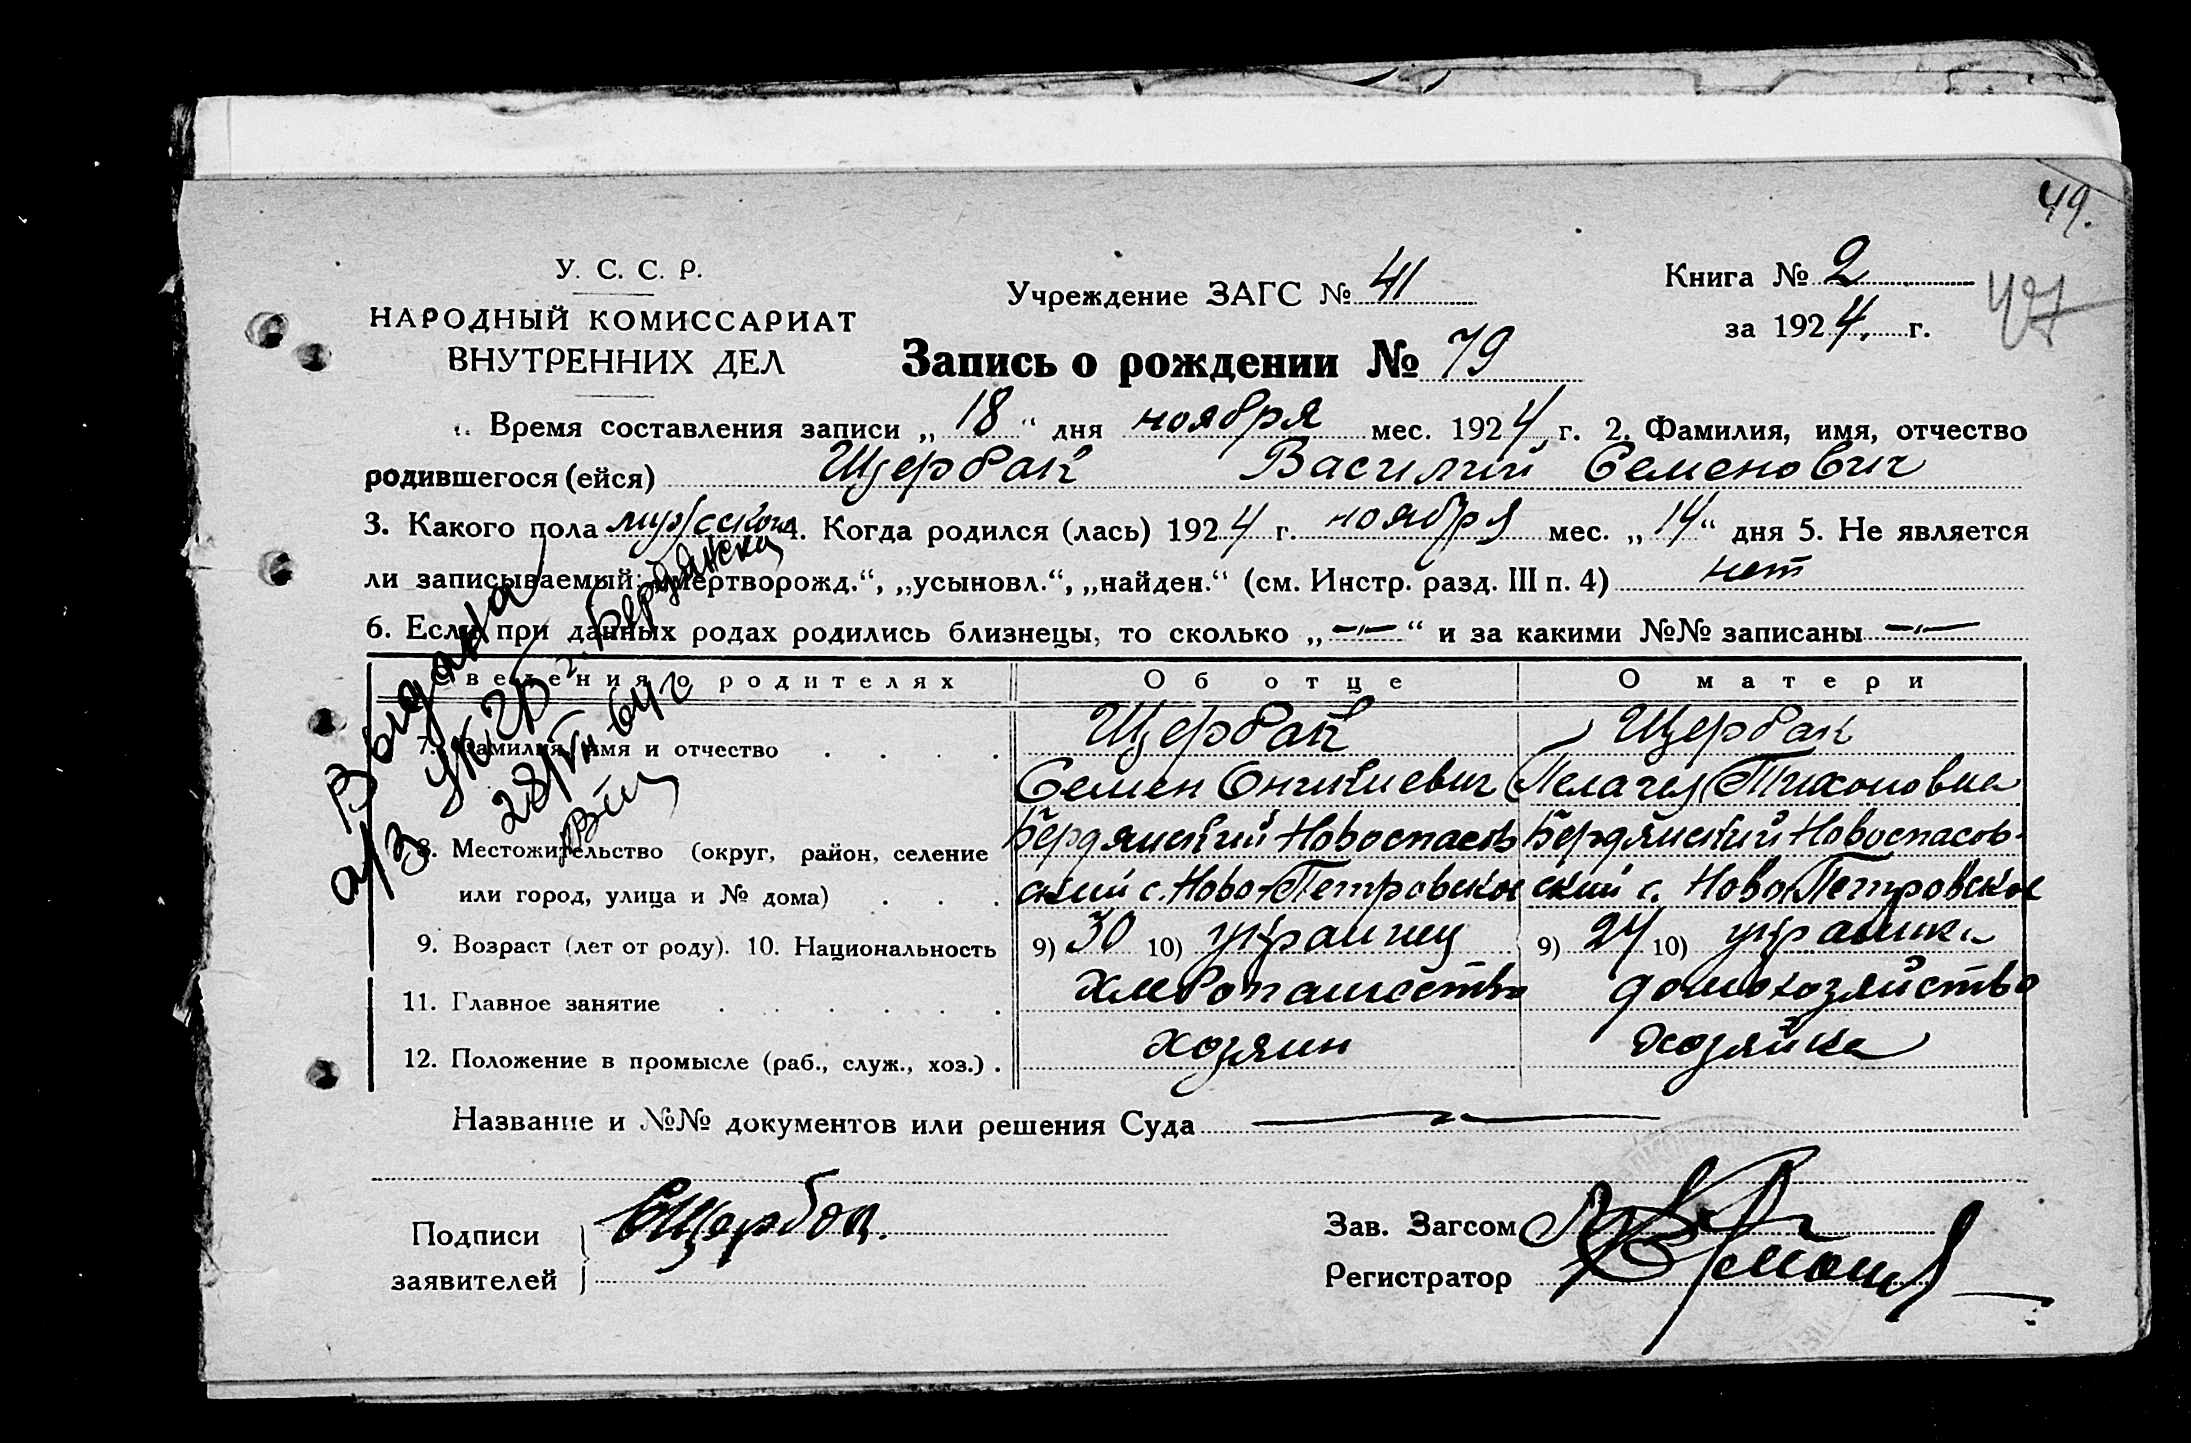 49.
У. С. С. Р.
НАРОДНЫЙ КОМИССАРИАТ
ВНУТРЕННИХ ДЕЛ
Учреждение ЗАГС № 41
Книга № 2
за 1924 г.
47
Запись о рождении № 79
Время составления записи „18“ дня ноября мес. 1924 г. 2. Фамилия, имя, отчество
родившегося (ейся) Щербак Василий Семенович
3. Какого пола мужского 4. Когда родился (лась) 1924 г. ноября мес. „14“ дня 5. Не является
ли записываемый: „мертворожд.“, „усыновл.“, „найден.“ (см. Инстр. разд. III п. 4) нет
6. Если при данных родах родились близнецы, то сколько „—„—“ и за какими №№ записаны —„—
Сведения о родителях Об отце О матери
7. Фамилия, имя и отчество . . . . Щербак Щербак
Семен Пелагея Тихоновна
8. Местожительство (округ, район, селение Бердянский Новоспасов Бердянский Новоспасов-
или город, улица и № дома) . . . ский с. Ново-Петровское ский с. Ново-Петровское
9. Возраст (лет от роду). 10. Национальность 9) 30 10) украинец 9) 24 10) украинка
11. Главное занятие . . . . . . хлебопашество домохозяйство
12. Положение в промысле (раб., служ., хоз.) . хозяин хозяйка
Название и №№ документов или решения Суда
Подписи
заявителей
Щербак
Зав. Загсом
Регистратор
Выдана
г. Бердянска
28/VII-64 г